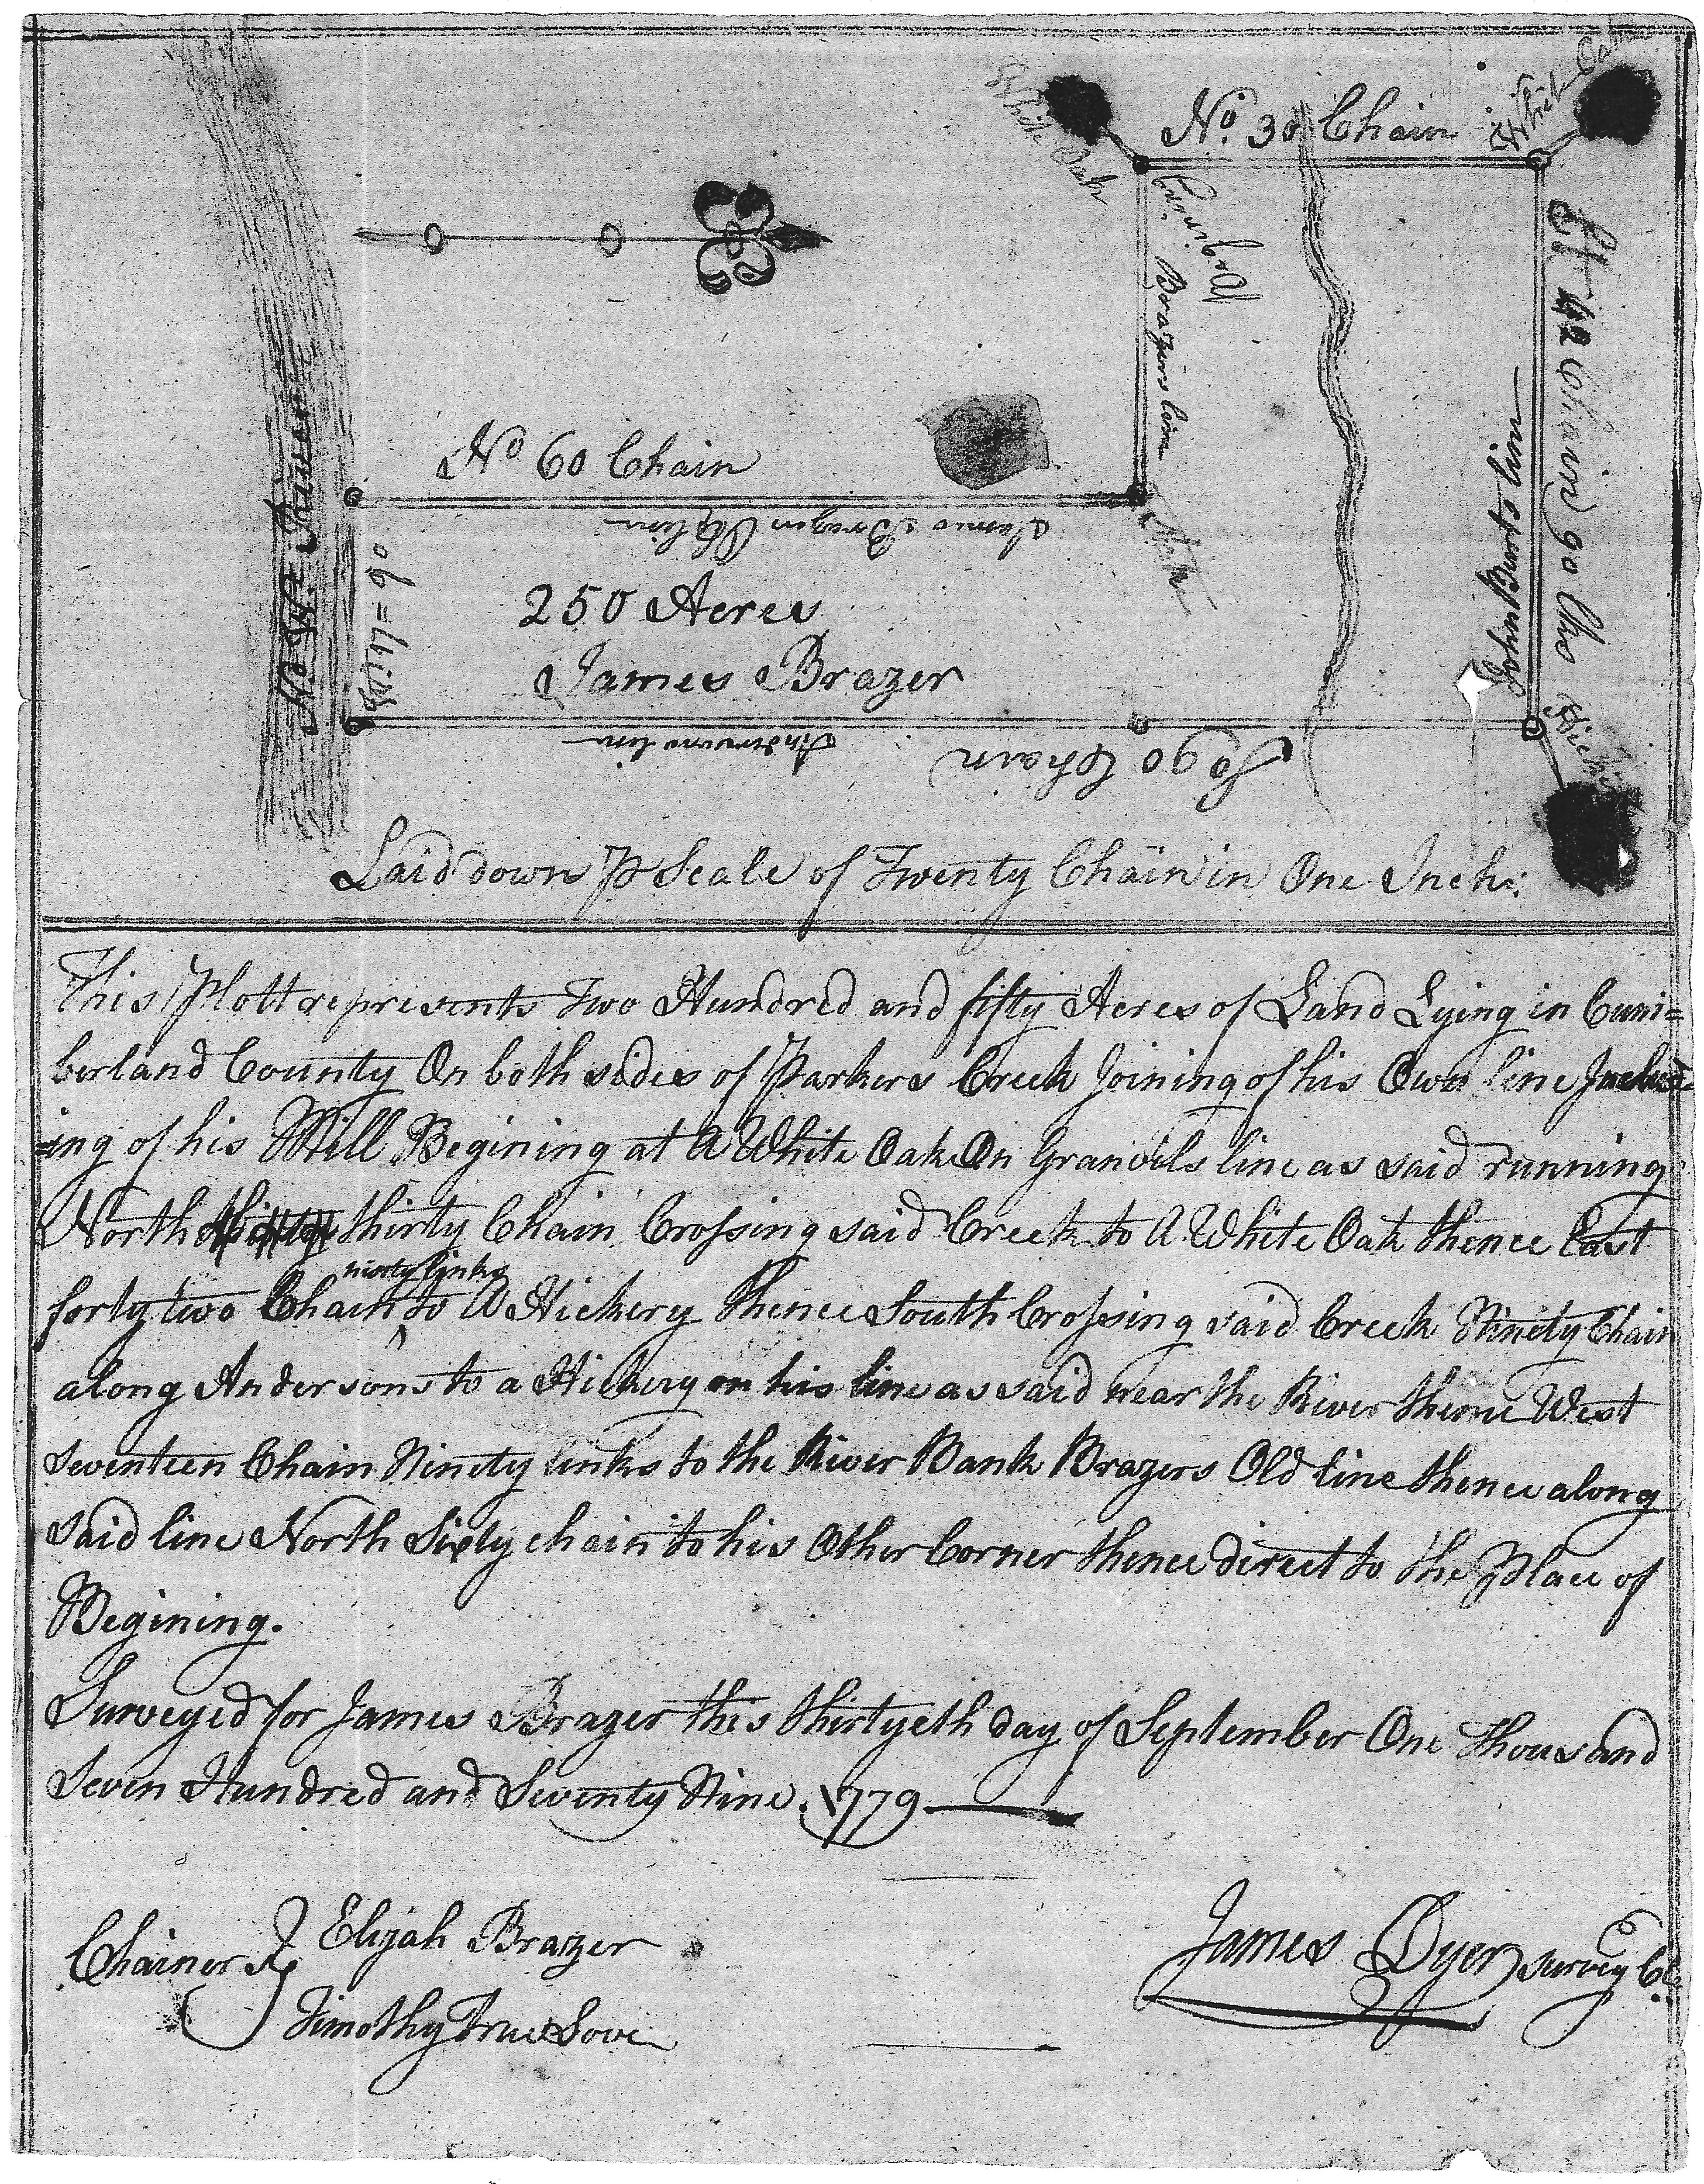 White Oak
No. 30 Chain
White Oak
Begining
Brazers line
Et 42 Chain 90 lks
John Burts line
No. W. River
No 60 Chain
James Brazer Old line
Wt. 17=90
250 Acres
James Brazer
Andersons line
So 90 Chain
Laid down ⅌ Scale of Twenty Chain in One Inch:
This Plott represents Two Hundred and fifty Acres of Land Lying in Cum=
berland County On both sides of Parkers Creek Joining of his Own line Includ
=ing of his Mill Begining at A White Oak On Granvils line as said running
North thirty Chain Crossing said Creek to A White Oak thence East
ninty links
forty two Chain to A Hickery Thence South Crossing said Creek Ninety Chain
along Andersons to a Hickery on his line as said near the River thence West
Seventeen Chain Ninety links to the River Bank Brazers Old line thence along
said line North Sixty chain to his Other Corner thence direct to the Place of
Begining.
Surveyed for James Brazer this thirtyeth day of September One Thousand
Seven Hundred and Seventy Nine. 1779
Chainers Elijah Brazer
Timothy True Love
James Dyer survey